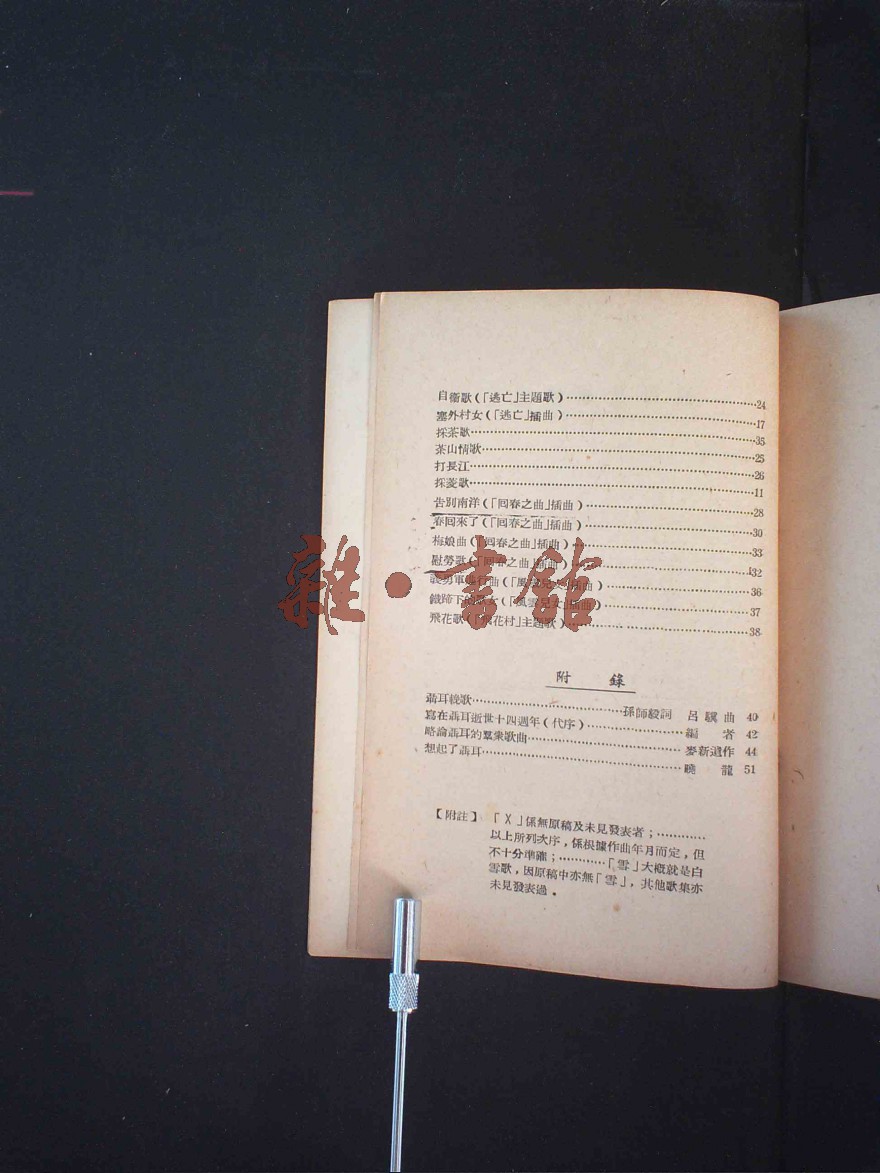 自衞歌(「逃亡」主題歌)…………24
塞外村女(「逃亡」插曲)…………17
採茶歌…………35
茶山情歌…………25
打長江…………26
採菱歌…………11
告別南洋(「囘春之曲」插曲)…………28
春囘來了(「囘春之曲」插曲)…………30
梅娘曲(「囘春之曲」插曲)…………33
慰勞歌(「囘春之曲」插曲)…………32
義勇軍進行曲(「風雲兒女」插曲)…………36
鐵蹄下的歌女(「風雲兒女」插曲)…………37
飛花歌(「飛花村」主題歌)…………38
附 錄
聶耳輓歌…………孫師毅詞 呂驥曲 40
寫在聶耳逝世十四週年(代序)…………編 者 42
略論聶耳的羣衆歌曲…………麥新遺作 44
想起了聶耳…………驍 龍 51
【附註】 「X」係無原稿及未見發表者;…………
以上所列次序,係根據作曲年月而定,但
不十分準確;…………「雪」大概就是白
雪歌,因原稿中亦無「雪」,其他歌集亦
未見發表過。
雜·書館